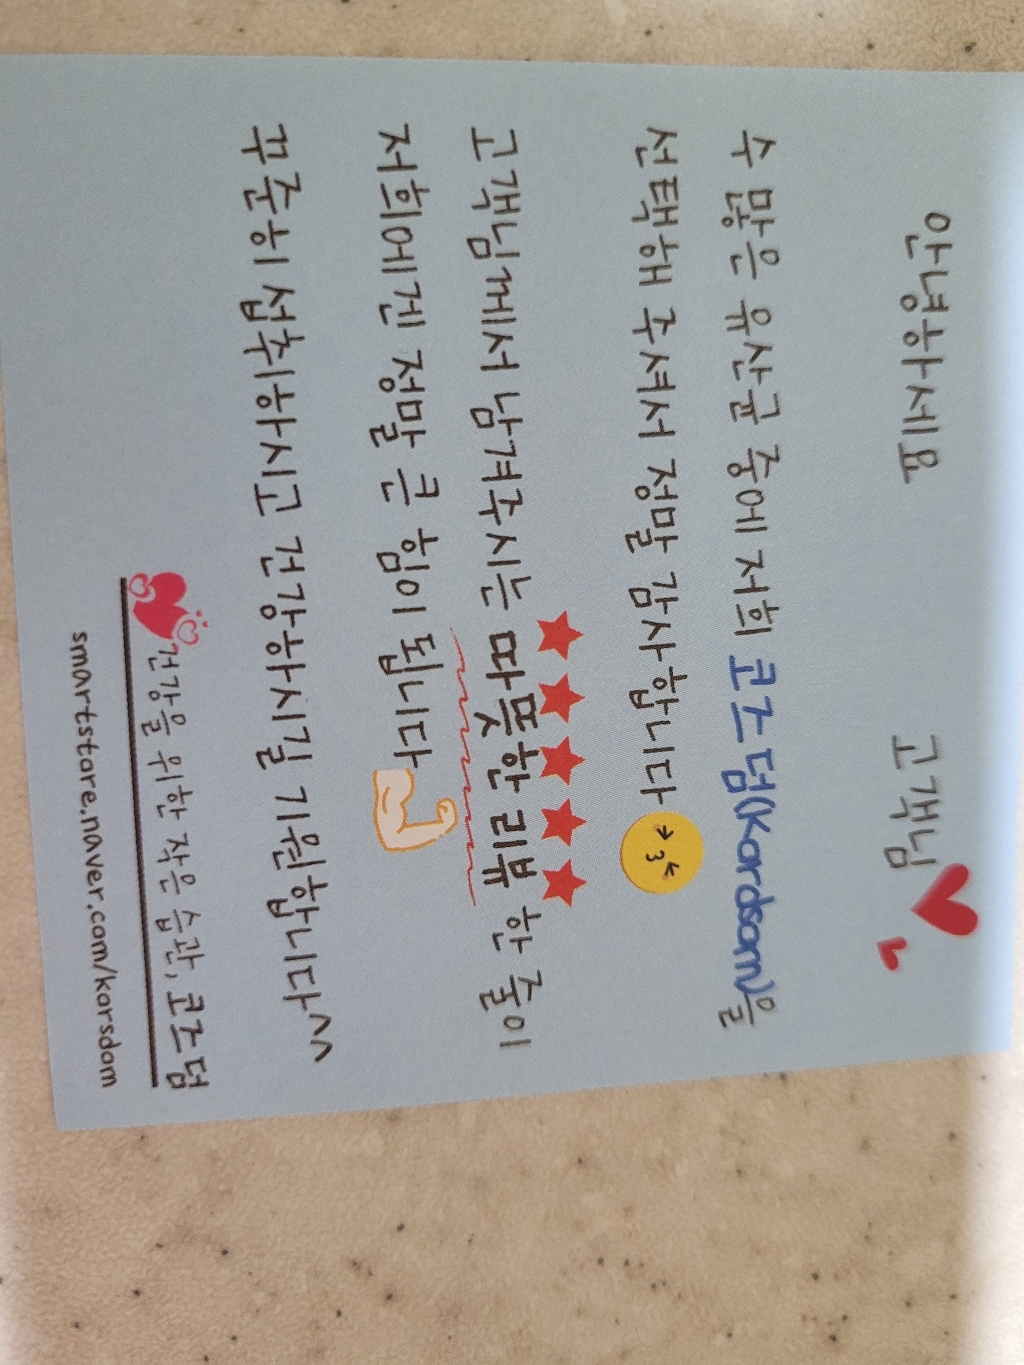 안녕하세요 고객님
수 많은 유산균 중에 저희 코즈덤(Kardsom)을
선택해 주셔서 정말 감사합니다
고객님께서 남겨주시는 따뜻한 리뷰 한 줄이
저희에겐 정말 큰 힘이 됩니다
꾸준히 섭취하시고 건강하시길 기원합니다^^
건강을 위한 작은 습관, 코즈덤
smartstore.naver.com/karsdom